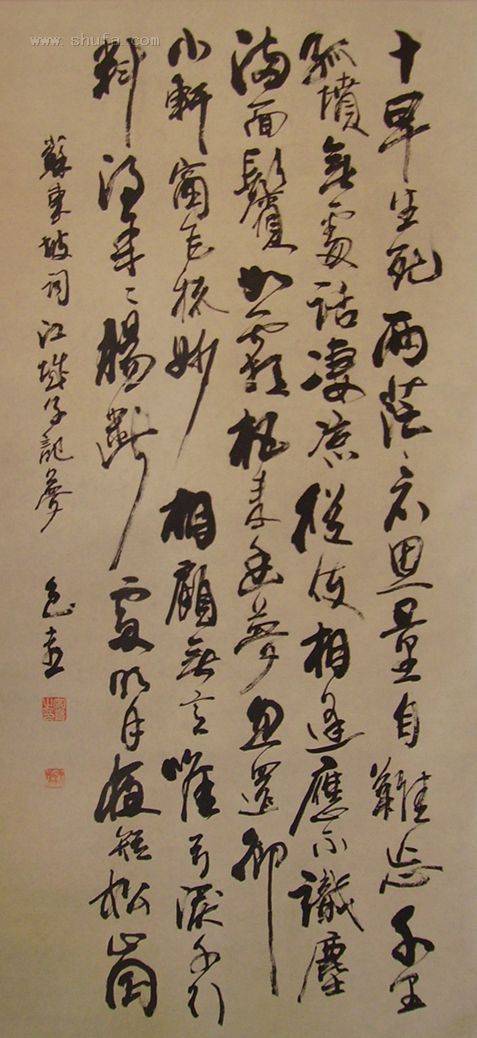 www.shufa.com
十年生死兩茫〻不思量自難忘千里
孤墳無處話凄凉縱使相逢應不識塵
滿面鬢如霜夜来幽夢忽還鄉
小軒窗正梳妝相顧無言唯有淚千行
料得年〻腸斷處明月夜短松崗
蘇東坡詞江城子記夢